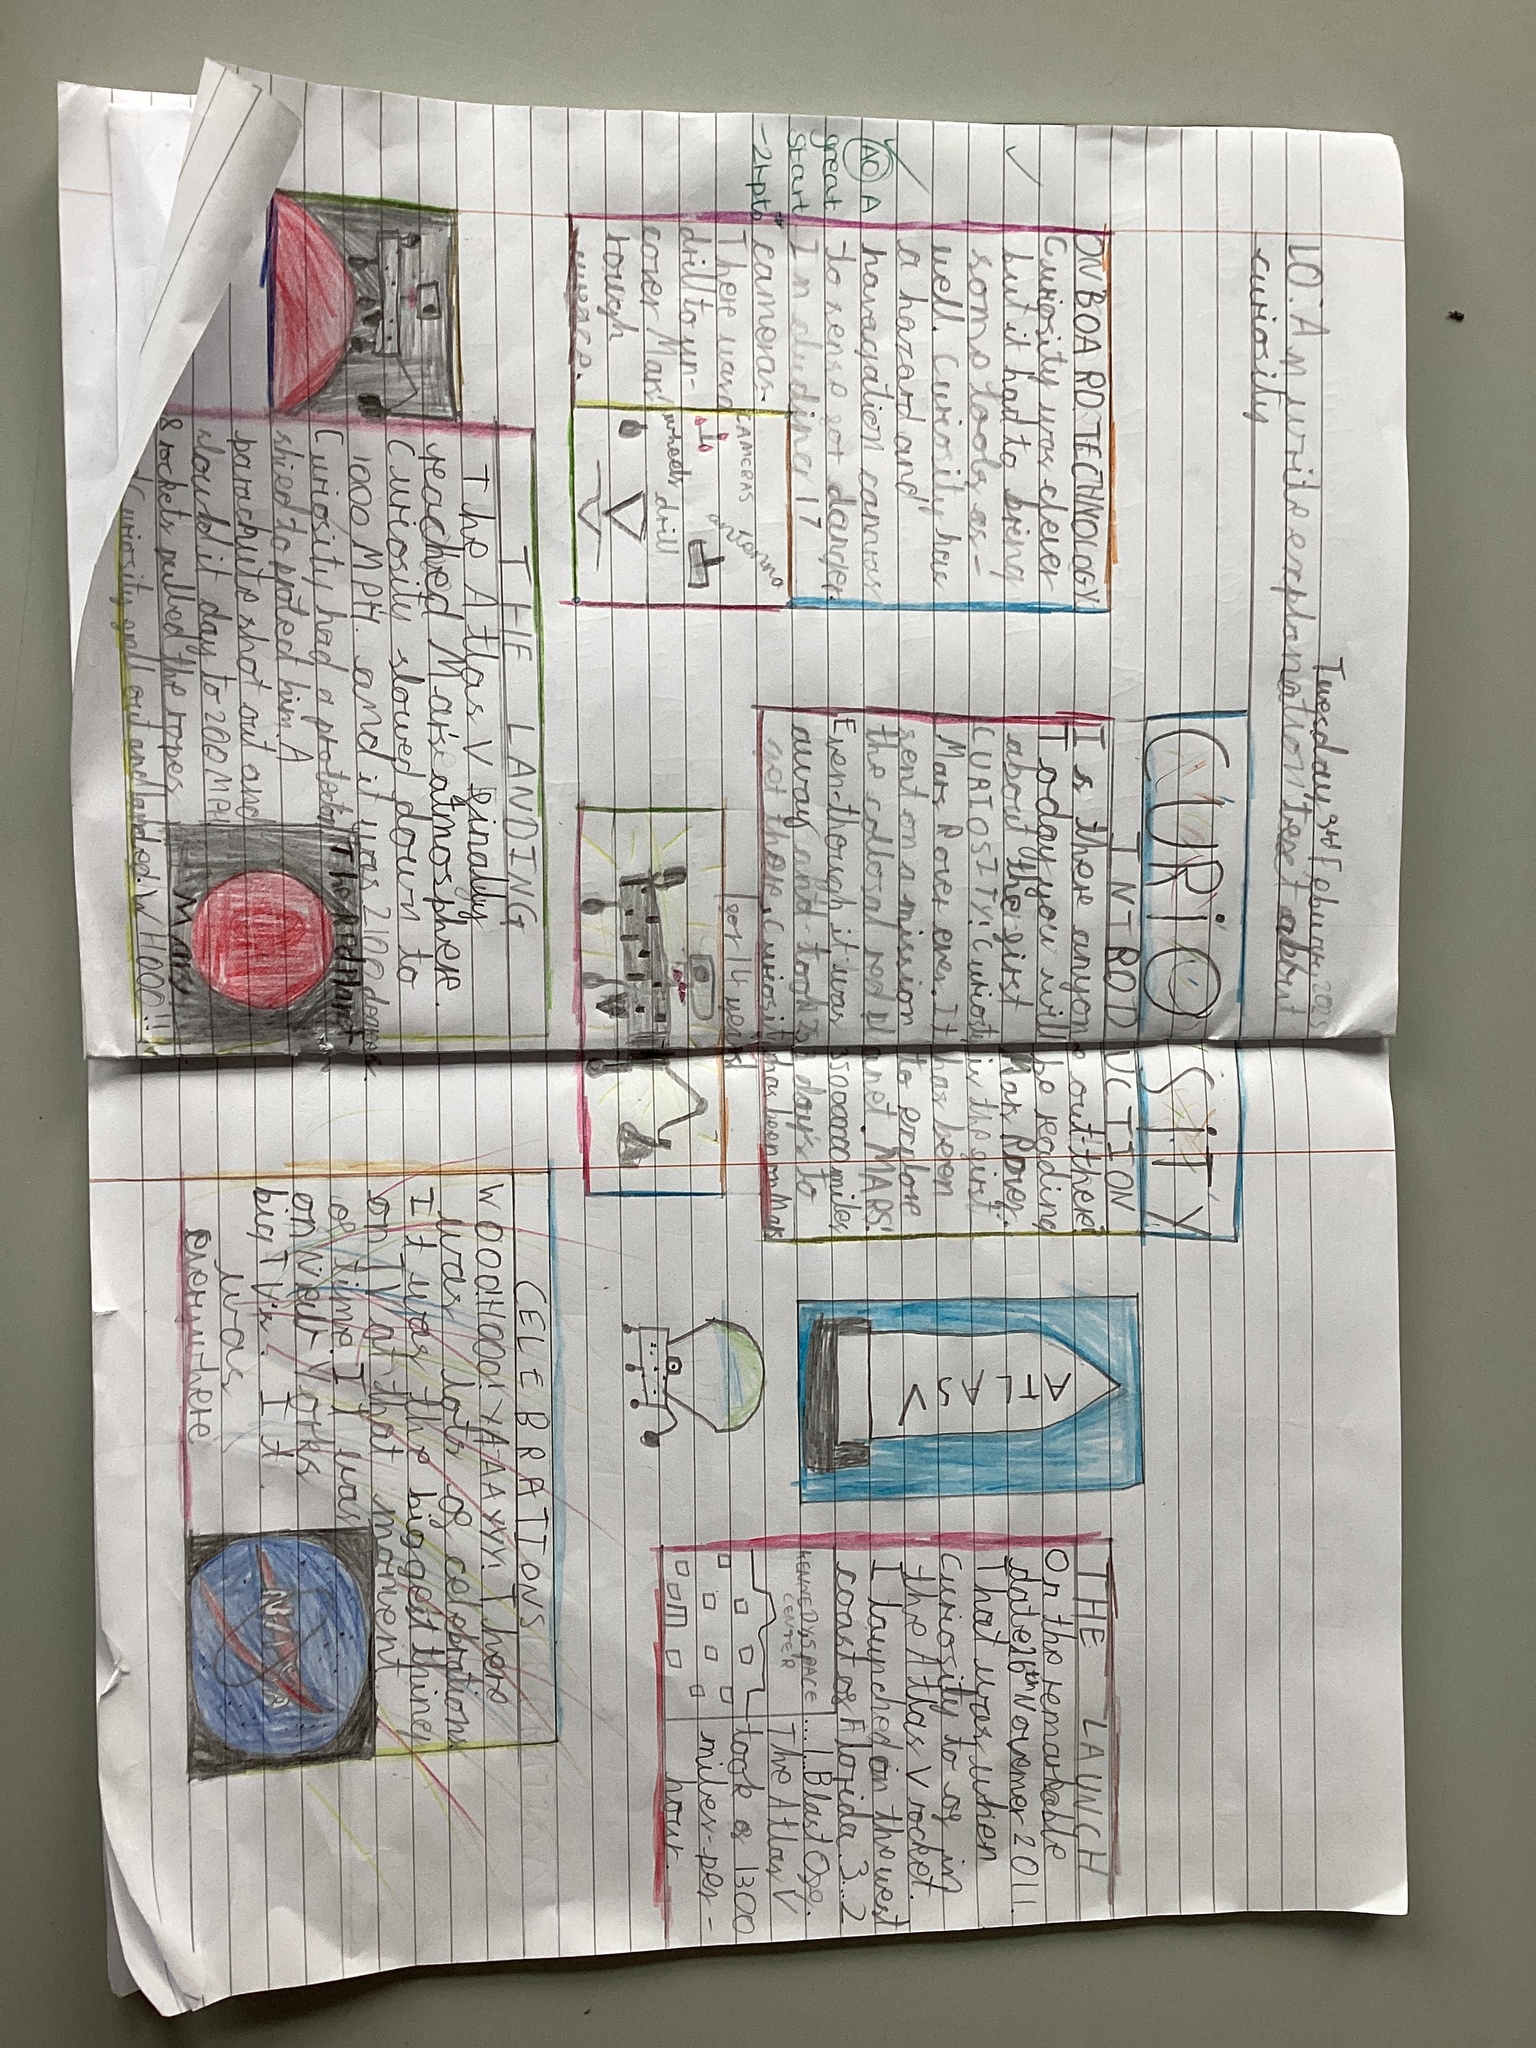 Tuesday 3rd Febuary 2025
LO: An write explanation text about
curiosity
CURiOSiTY
INTRODUCTION
Is there anyone out there?
Today you will be reading
about the first Mars Rover.
CURIOSITY. Curiosity is the first
Mars Rover ever. It has been
sent on a mission to explore
the collosal red planet. MARS!
Even though it was 35000000 miles
away and took days to
get there. Curiosity has been on Mars
for 14 years!
ONBOARD TECHNOLOGY
Curiosity was clever
but it had to bring
some tools as-
well. Curiosity have
a hazard and
havagation camras
to sense for danger.
Including 17
cameras.
There was a
drill to un-
cover Mars'
rough
surface.
CAMERAS
antenna
wheels
drill
AO A
great
start
-2h pts
THE LANDING
The Atlas V finally
reached Mars atmosphere.
Curiosity slowed down to
1000 MPH. and it was 2100 degrees.
Curiosity had a protected
shied to protected him. A
parachute shot out and
slowd it day to 200 MPH
8 rockets pulled the ropes
Curiosity fell out and landed. WHOO!!
The red planet
Mars
ATLAS
V
THE LAUNCH
On the remarkable
date 26th Novemer 2011.
That was when
Curiosity to of in
the Atlas V rocket.
I launched on the west
coast of Florida. 3..2
...1..Blast Off.
The Atlas V
took of 1300
miles-per-
hour.
KENNEDY SPACE
CENTER
CELEBRATIONS
WOOOHOOO! YAAAYYY! There
was lots of celebrations
It was the biggest thing
on TV at that moment
of time. I was
on New Yorks
big TVs. It
was
everywhere
NASA